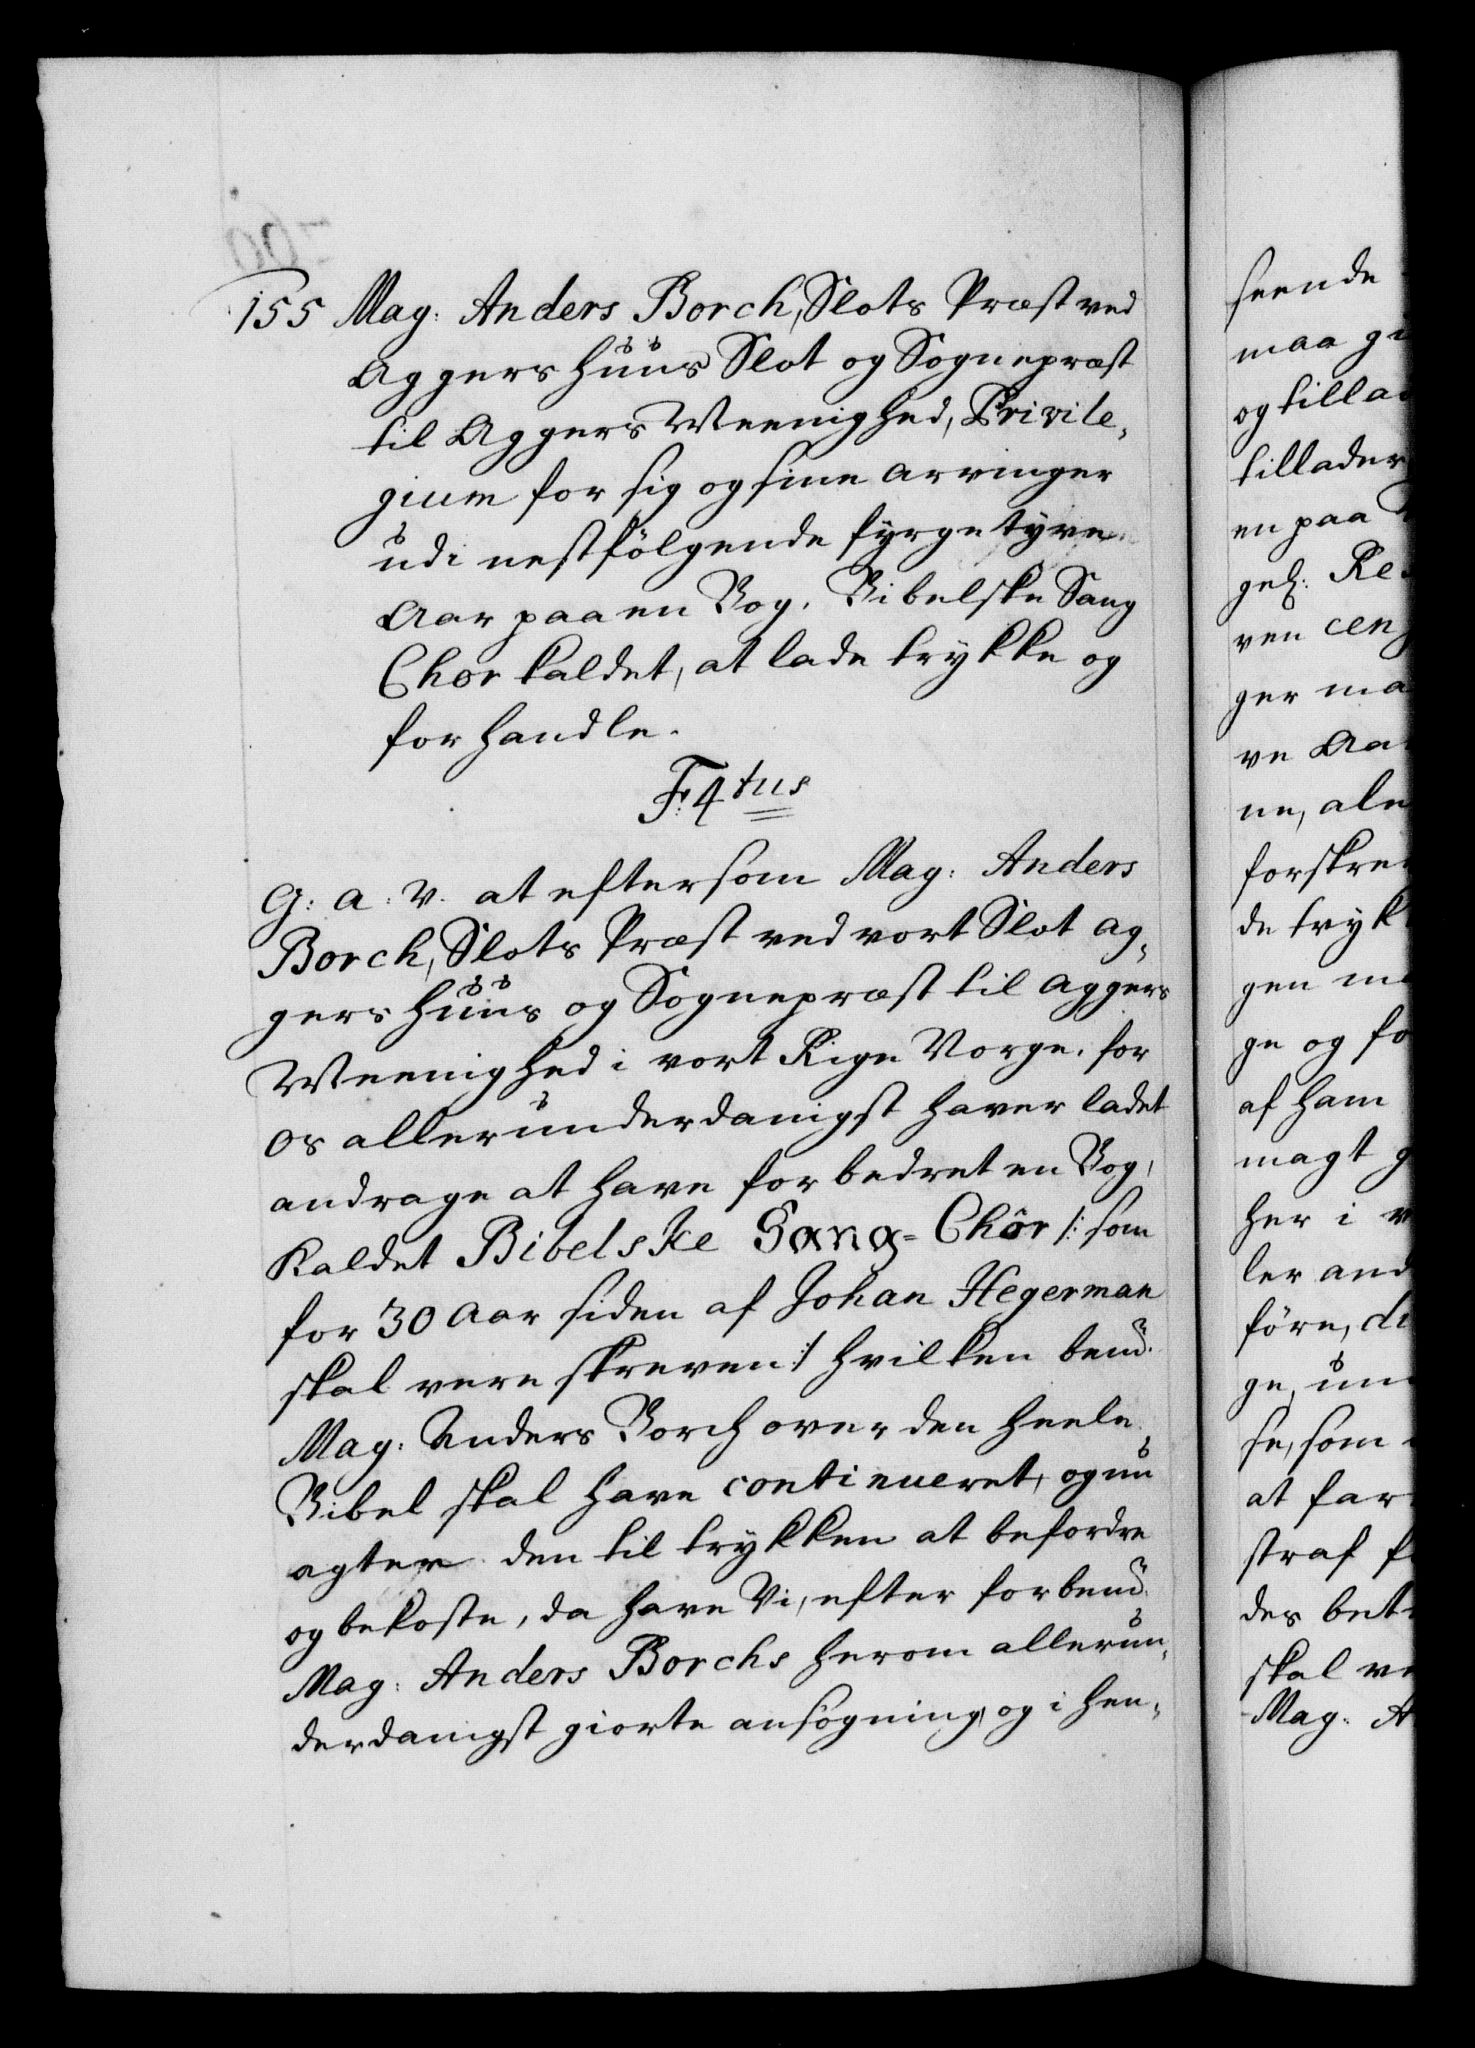 155 Mag: Anders Borch, Slots Præst ved
Aggers Huus Slot og Sognepræst
til Aggers Meenighed, Privile,
gium for sig og sine arvinger
udi nestfölgende fyrgetyve
Aar paa en Bog. Bibelske Sang
Chor kaldet, at lade trykke og
forhandle.
F: 4tus
G: a: V. at eftersom Mag: Anders
Borch, Slots Præst ved vort Slot Ag,
gers Huus og Sognepræst til Aggers
Meenighed i vort Rige Norge. for
os allerunderdanigst haver ladet
andrage at have forbedret en Bog,
Kaldet Bibelske Sang=Chor /: som
for 30 Aar siden af Johan Hegerman
skal vere skreven :/ hvilken bem:te
Mag: Anders Borch over den heele
Bibel skal have continueret, og nu
agter den til trykken at befordre
og bekoste, da have Vi, efter forbem:te
Mag: Anders Borchs herom allerun,
derdanigst giorte ansögning, og i hen,
seende
maa gi
og tillad
tillader
en paa
ven cen
ger ma
ve Aa
ne, ale
forskre
de tryk
gen me
ge og fo
af ham
magt g
her i v
ler and
före, di
ge, un
se, som
at far
straf f
des bet
skal ve
Mag: A